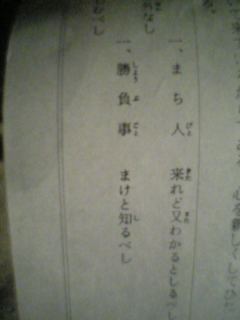 一、まち人 来れど又わかるとしるべし
一、勝負事 まけと知るべし
なし
むべし